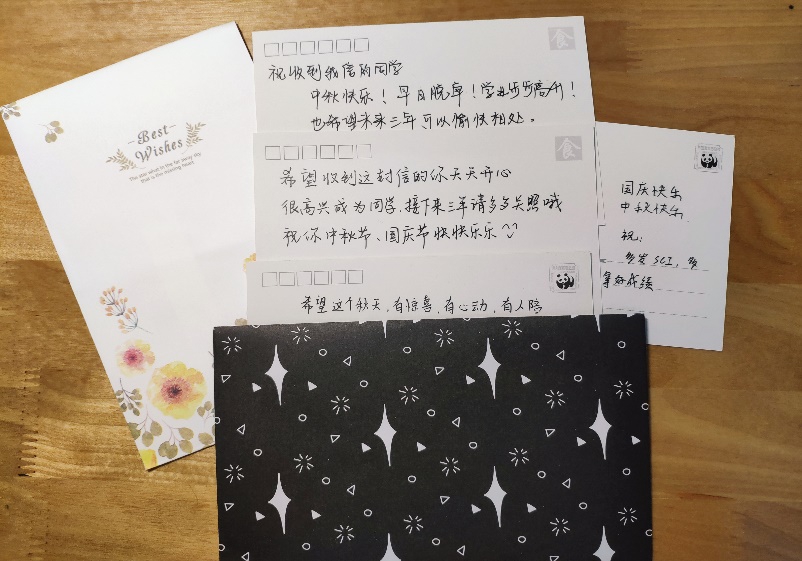 Best
Wishes
食
祝收到我信的同学
中秋快乐！早日脱单！学业步步高升！
也希望未来三年可以愉快相处。
食
希望收到这封信的你天天开心
很高兴成为同学，接下来三年请多多关照哦
祝你中秋节、国庆节快快乐乐
希望这个秋天，有惊喜，有心动，有人陪
国庆快乐
中秋快乐
祝：
多发SCI，多
拿好成绩